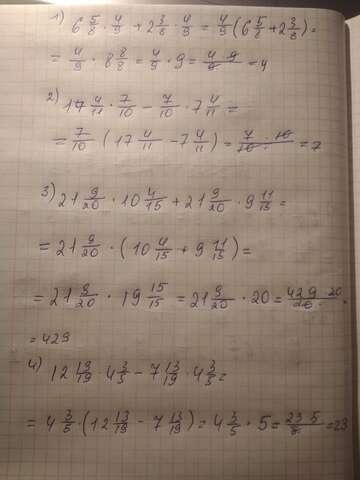 1) 6 5/8 · 4/9 + 2 3/8 · 4/9 = 4/9 (6 5/8 + 2 3/8) =
= 4/9 · 8 8/8 = 4/9 · 9 = 4·9/9 = 4
2) 17 4/11 · 7/10 − 7/10 · 7 4/11 =
= 7/10 (17 4/11 − 7 4/11) = 7·10/10 = 7
3) 21 9/20 · 10 4/15 + 21 9/20 · 9 11/15 =
= 21 9/20 · (10 4/15 + 9 11/15) =
= 21 9/20 · 19 15/15 = 21 9/20 · 20 = 429·20/20 =
= 429
4) 12 13/19 · 4 3/5 − 7 13/19 · 4 3/5 =
= 4 3/5 · (12 13/19 − 7 13/19) = 4 3/5 · 5 = 23·5/5 = 23